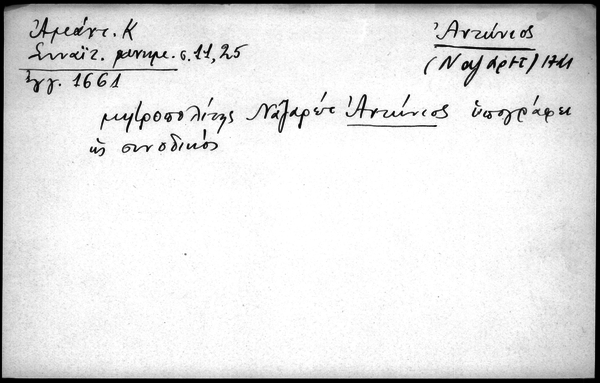 Ἀμάντ. Κ
Σιναϊτ. μνημ. σ. 11, 25
ἔγγ. 1661
Ἀντώνιος
(Ναζαρέτ)
μητροπολίτης Ναζαρέτ Ἀντώνιος ὑπογράφει
ὡς συνοδικός